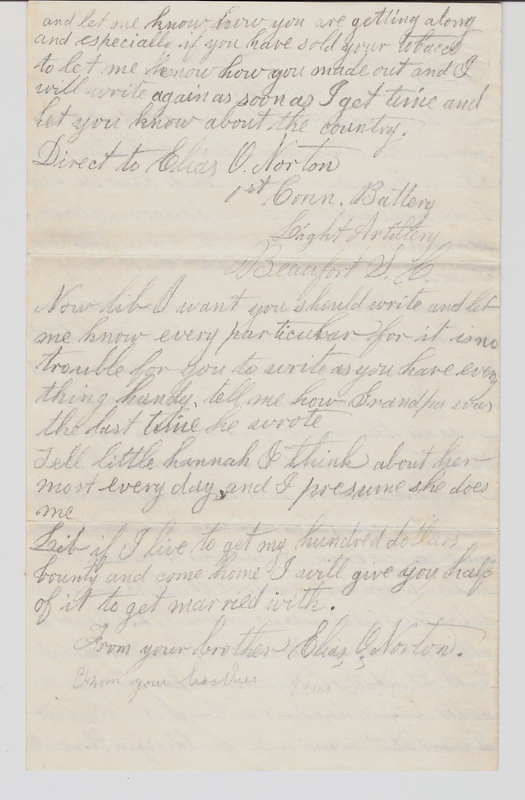 and let me know how you are getting along
and especially if you have sold your tobacco
to let me know how you made out and I
will write again as soon as I get time and
let you know about the country.
Direct to Elias O. Norton
1st Conn. Battery
Light Artillery
Beaufort S.
Now lib I want you should write and let
me know every particular for it is no
trouble for you to write as you have every
thing handy, tell me how Grandpa was
the last time he wrote
Tell little hannah I think about her
most every day and I presume she does
me
Lib if I live to get my hundred dollars
bounty and come home I will give you half
of it to get married with.
From your brother Elias O. Norton.
From your brother